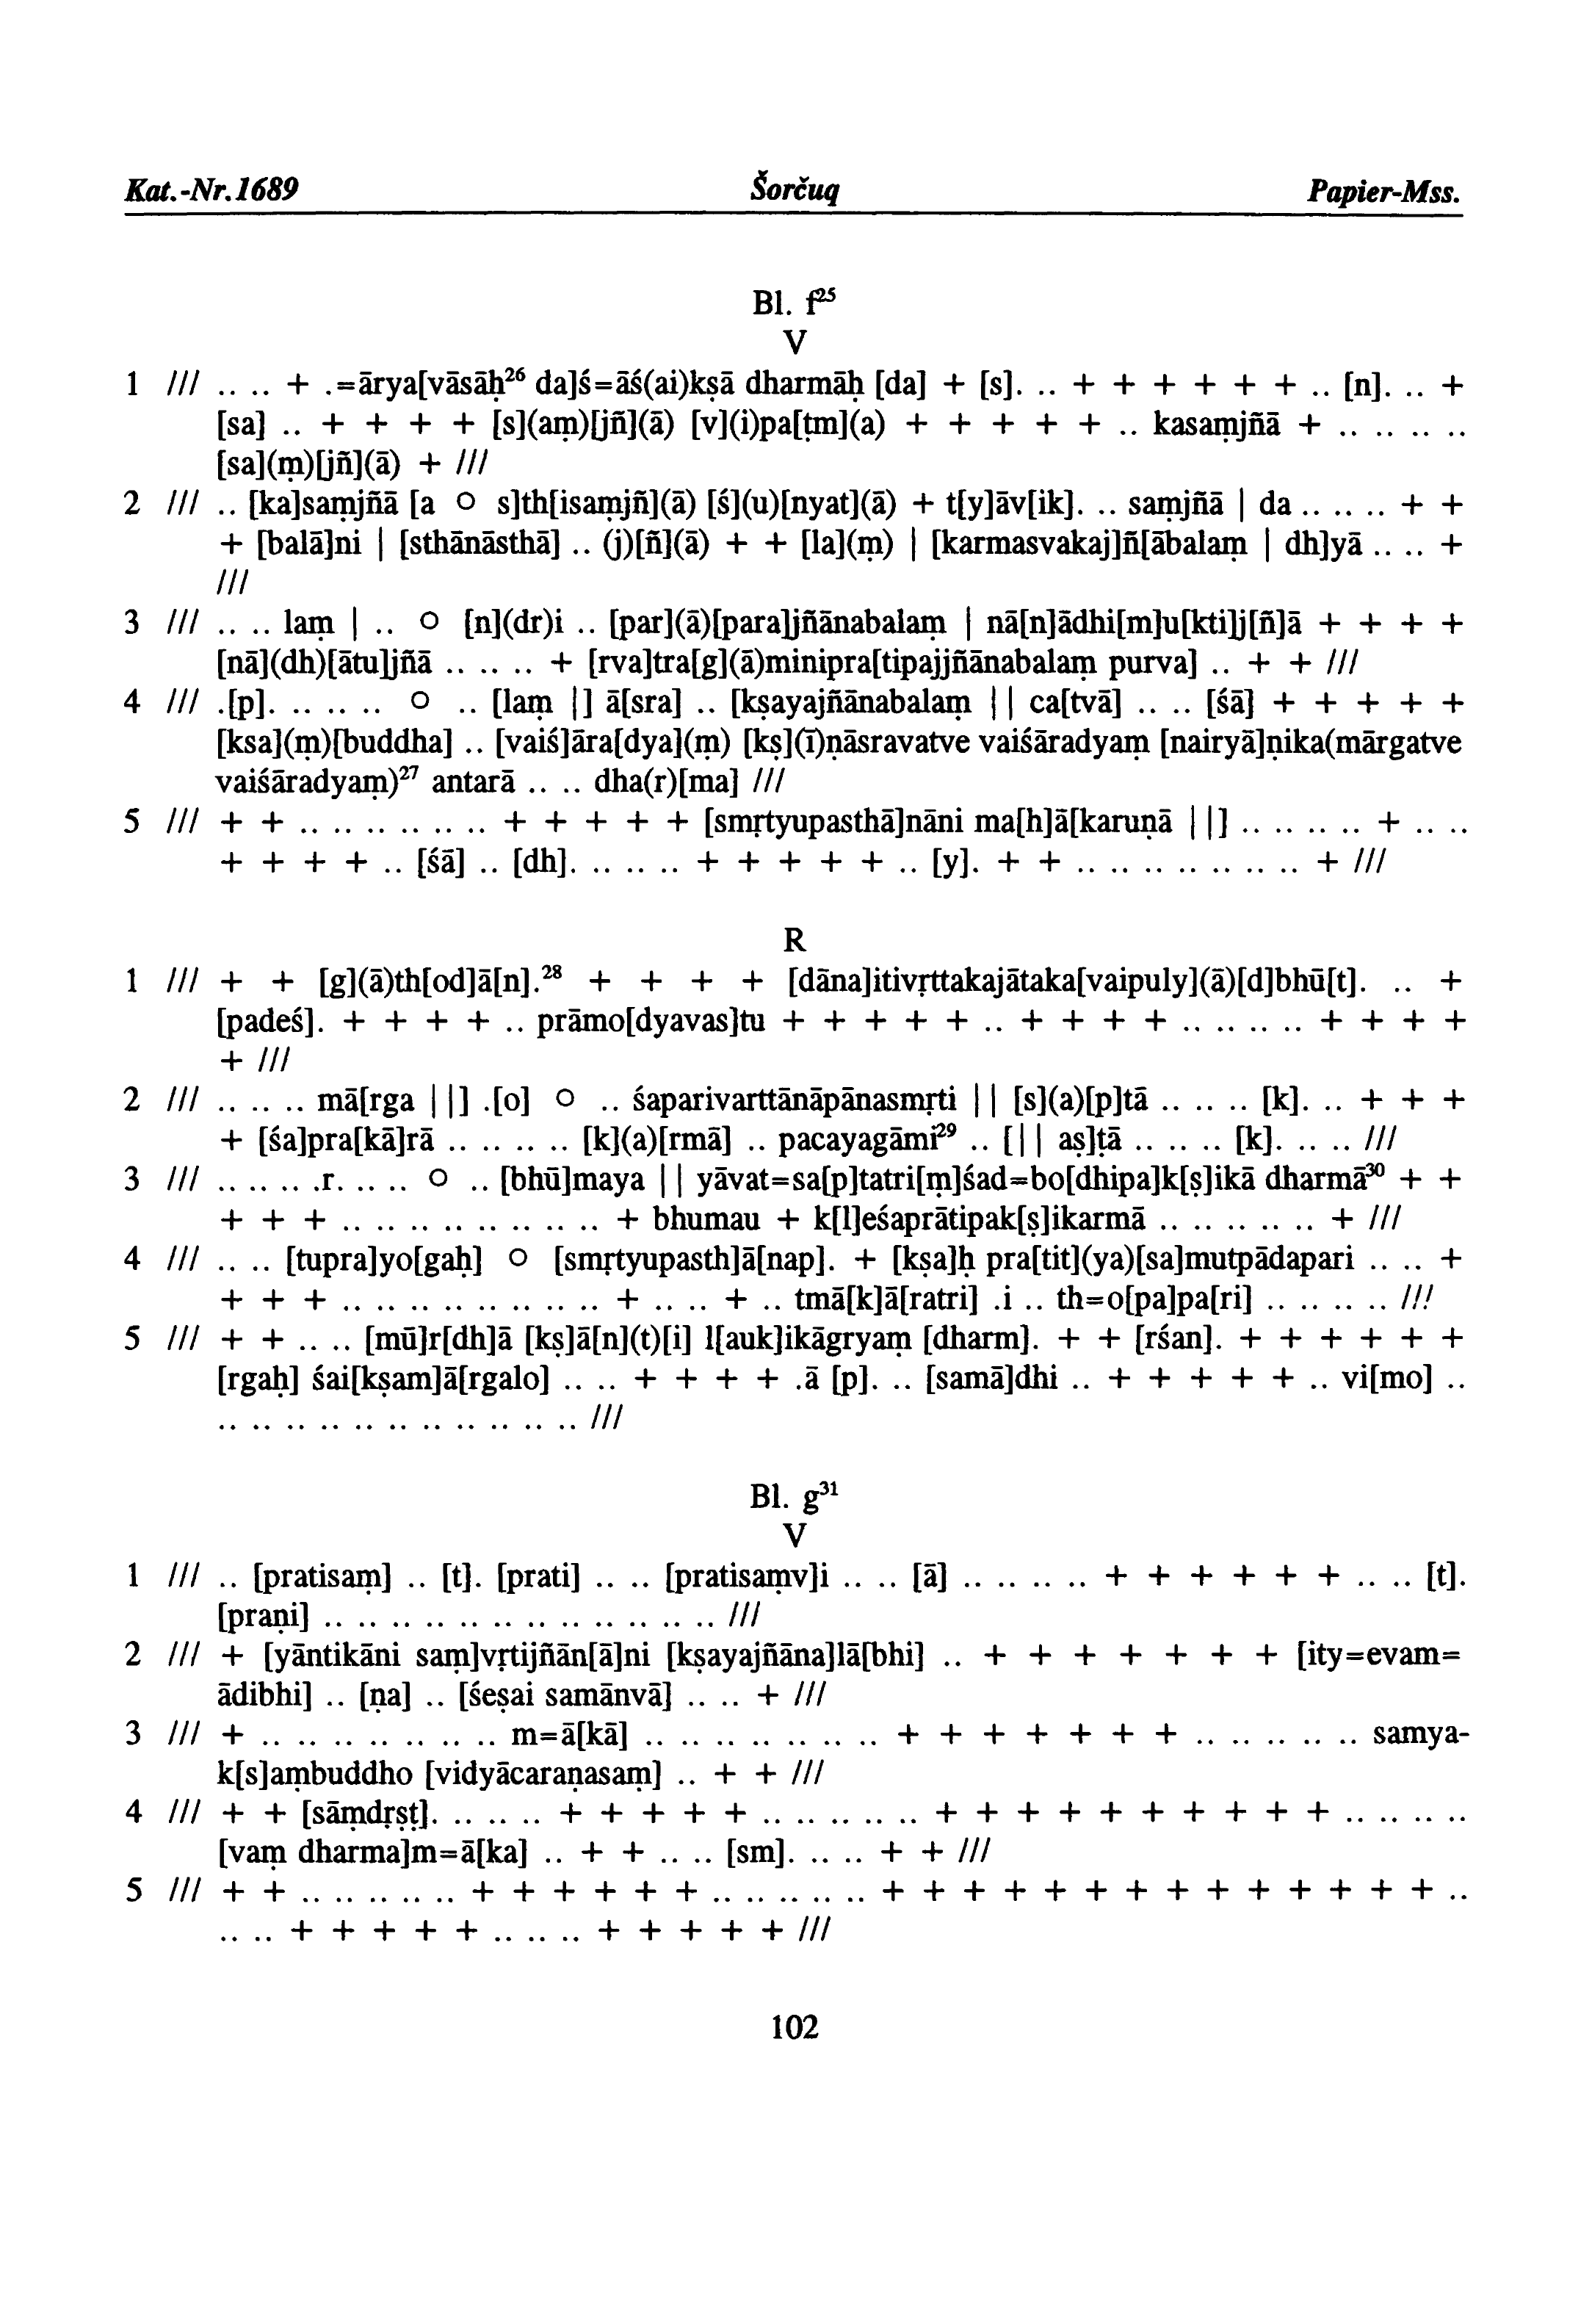 Kat.-Nr. 1689 Šorčuq Papier-Mss.
Bl. f²⁵
V
1 /// .. .. + .=ārya[vāsāḥ²⁶ da]ś=āś(ai)kṣā dharmāḥ [da] + [s]. .. + + + + + + .. [n]. .. +
[sa] .. + + + + [s](aṃ)[jñ](ā) [v](i)pa[ṭm](a) + + + + + .. kasaṃjñā + .. .. .. ..
[sa](ṃ)[jñ](ā) + ///
2 /// .. [ka]saṃjñā [a ○ s]th[isaṃjñ](ā) [ś](u)[nyat](ā) + t[y]āv[ik]. .. saṃjñā | da .. .. .. + +
+ [balā]ni | [sthānāsthā] .. (j)[ñ](ā) + + [la](ṃ) | [karmasvakaj]ñ[ābalaṃ | dh]yā .. .. +
///
3 /// .. .. laṃ | .. ○ [n](dr)i .. [par](ā)[para]jñānabalaṃ | nā[n]ādhi[m]u[kti]j[ñ]ā + + + +
[nā](dh)[ātu]jñā .. .. .. + [rva]tra[g](ā)minipra[tipajjñānabalaṃ purva] .. + + ///
4 /// .[p]. .. .. .. ○ .. [laṃ |] ā[sra] .. [kṣayajñānabalaṃ || ca[tvā] .. .. [śā] + + + + +
[ksa](ṃ)[buddha] .. [vaiś]āra[dya](ṃ) [kṣ](ī)ṇāsravatve vaiśāradyaṃ [nairyā]ṇika(mārgatve
vaiśāradyaṃ)²⁷ antarā .. .. dha(r)[ma] ///
5 /// + + .. .. .. .. .. .. + + + + + [smṛtyupasthā]nāni ma[h]ā[karuṇā ||] .. .. .. .. + .. ..
+ + + + .. [śā] .. [dh]. .. .. .. + + + + + .. [y]. + + .. .. .. .. .. .. .. + ///
R
1 /// + + [g](ā)th[od]ā[n].²⁸ + + + + [dāna]itivṛttakajātaka[vaipuly](ā)[d]bhū[t]. .. +
[padeś]. + + + + .. prāmo[dyavas]tu + + + + + .. + + + + .. .. .. .. + + + +
+ ///
2 /// .. .. .. mā[rga ||] .[o] ○ .. śaparivarttānāpānasmṛti || [s](a)[p]tā .. .. .. [k]. .. + + +
+ [śa]pra[kā]rā .. .. .. .. [k](a)[rmā] .. pacayagāmi²⁹ .. [|| aṣ]ṭā .. .. .. [k]. .. .. ///
3 /// .. .. .. .r. .. .. ○ .. [bhū]maya || yāvat=sa[p]tatri[ṃ]śad=bo[dhipa]k[ṣ]ikā dharmā³⁰ + +
+ + + .. .. .. .. .. .. .. .. + bhumau + k[l]eśaprātipak[ṣ]ikarmā .. .. .. .. .. + ///
4 /// .. .. [tupra]yo[gaḥ] ○ [smṛtyupasth]ā[nap]. + [kṣa]ḥ pra[tit](ya)[sa]mutpādapari .. .. +
+ + + .. .. .. .. .. .. .. .. + .. .. + .. tmā[k]ā[ratri] .i .. th=o[pa]pa[ri] .. .. .. .. ///
5 /// + + .. .. [mū]r[dh]ā [kṣ]ā[n](t)[i] l[auk]ikāgryaṃ [dharm]. + + [rśan]. + + + + + +
[rgaḥ] śai[kṣam]ā[rgalo] .. .. + + + + .ā [p]. .. [samā]dhi .. + + + + + .. vi[mo] ..
.. .. .. .. .. .. .. .. .. .. .. ///
Bl. g³¹
V
1 /// .. [pratisaṃ] .. [t]. [prati] .. .. [pratisaṃv]i .. .. [ā] .. .. .. .. + + + + + + .. .. [t].
[praṇi] .. .. .. .. .. .. .. .. .. .. .. .. ///
2 /// + [yāntikāni saṃ]vṛtijñān[ā]ni [kṣayajñāna]lā[bhi] .. + + + + + + + [ity=evam=
ādibhi] .. [ṇa] .. [śeṣai samānvā] .. .. + ///
3 /// + .. .. .. .. .. .. .. m=ā[kā] .. .. .. .. .. .. .. + + + + + + + .. .. .. .. .. samya-
k[s]aṃbuddho [vidyācaraṇasaṃ] .. + + ///
4 /// + + [sāṃdṛṣṭ]. .. .. .. + + + + + .. .. .. .. .. + + + + + + + + + + .. .. .. ..
[vaṃ dharma]m=ā[ka] .. + + .. .. [sm]. .. .. + + ///
5 /// + + .. .. .. .. .. + + + + + + .. .. .. .. .. + + + + + + + + + + + + + + ..
.. .. + + + + + .. .. .. + + + + + ///
102